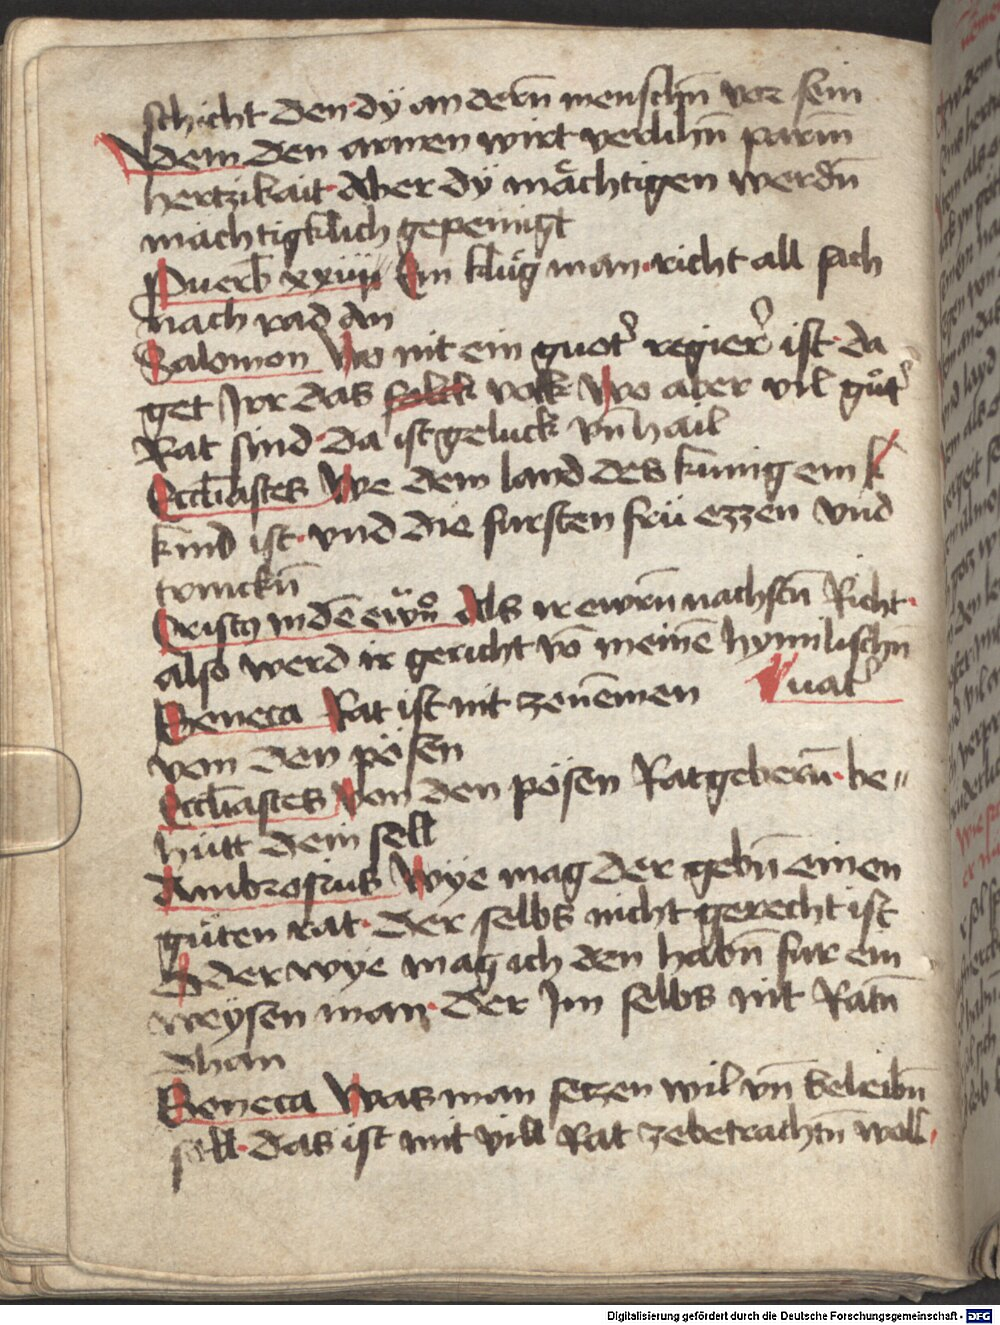 schicht den dÿ an dern̄ menschn̄ vor sein
Wdem den armen wirt verlihn̄ parm̄
hertzikait. Aber dÿ mächtigen werdn̄
mächtigklich gepeinigt
Puerb xxiiij Ein klüg man. richt all sach
nach rad an
Salomon Wo nit ein guot' regier' ist. da
get Irr das volk Wo aber vil gůt'
Rat sind. Da ist geluck vn̄ hail
Eccl̄iastes We dem land des kunnig ein k
kind ist. vnd die fursten frü ezzen vnd
trinckn̄
Cristꝫ in dē ewn̄ Als ir ewrn̄ nachstn̄ Richt.
also werd ir gericht vō meinē hymilischn̄
vat'
Seneca Rat ist nit zenēmen
von den pösen
Eccl̄iastes Von den pösen Ratgebern̄. be„
hütt dein sell
Ambrosius Wÿe mag der gebn̄ einen
güten rat. Der selbs nicht gerecht ist
Oder wye mag ich den habn̄ fur ein
weysen man. Der Im selbs nit Ratn̄
chan
Seneca Was man setzen wil vn̄ beleibn̄
soll. das ist mit vill Rat zebetrachtn̄ woll.
Digitalisierung gefördert durch die Deutsche Forschungsgemeinschaft - DFG